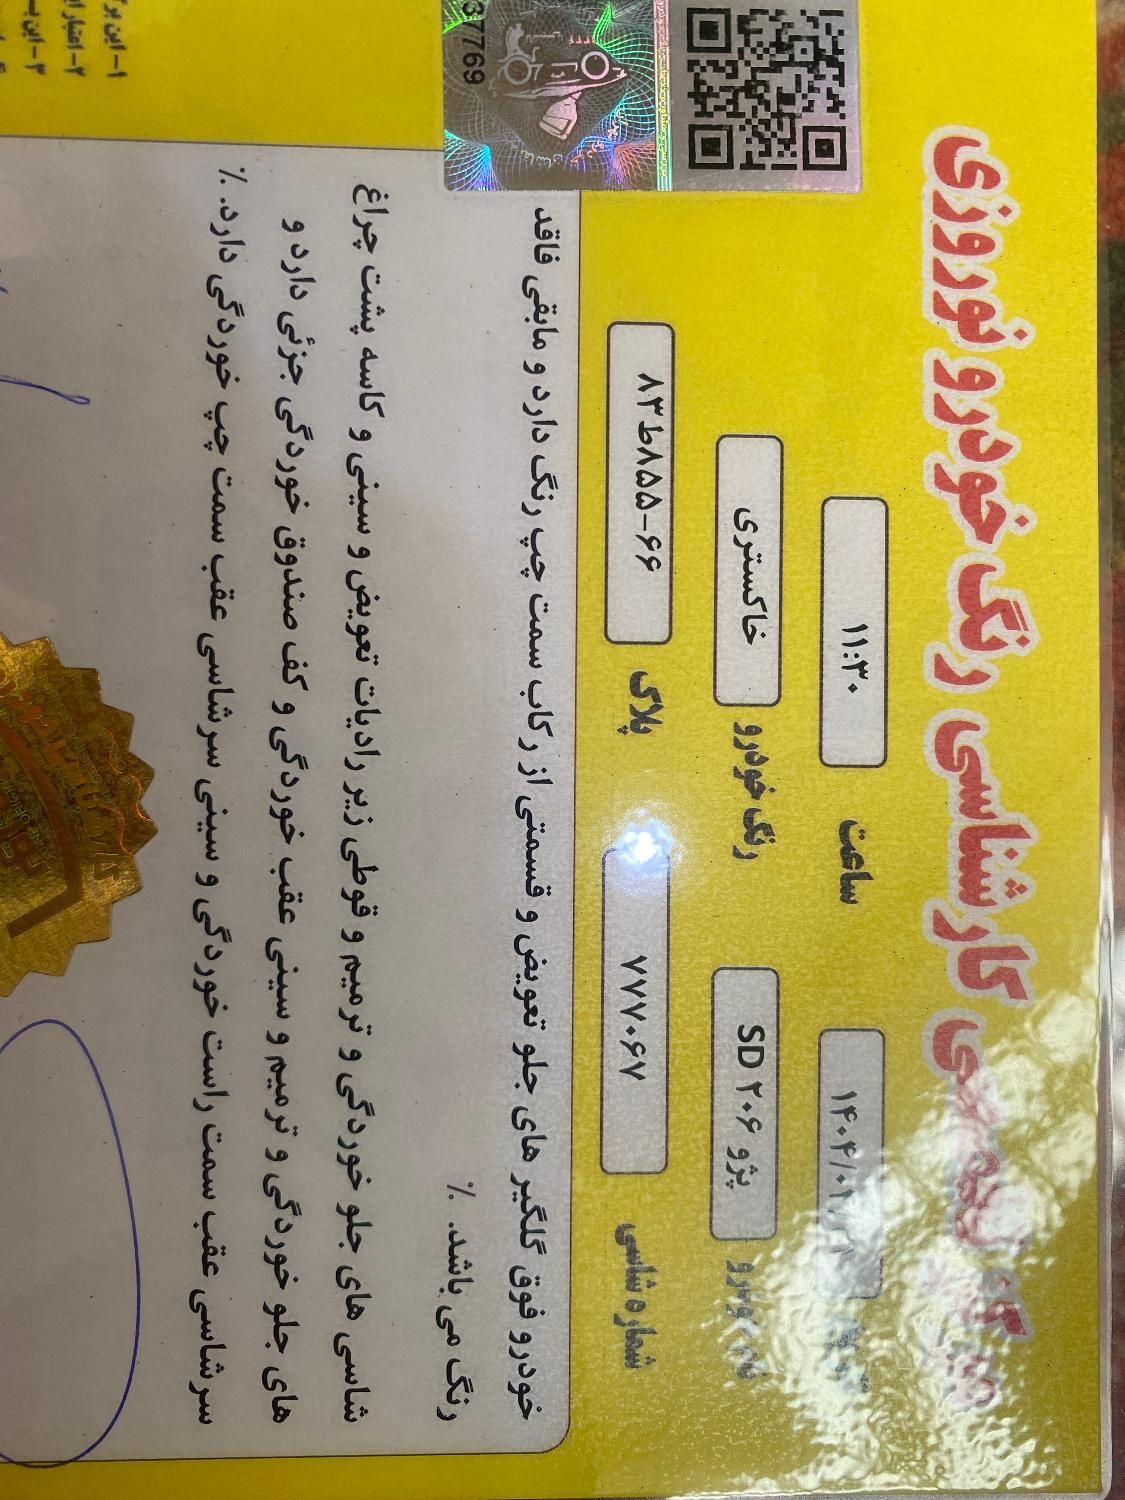 کارشناسی رنگ خودرو نوروزی
ساعت ۱۱:۳۰
نام خودرو پژو ۲۰۶ SD
رنگ خودرو خاکستری
شماره شاسی ۷۷۷۰۶۷
پلاک ۸۳ط۸۵۵-۶۶
خودرو فوق گلگیر های جلو تعویض و قسمتی از رکاب سمت چپ رنگ دارد و مابقی فاقد
رنگ می باشد. ٪
شاسی های جلو خوردگی و ترمیم و قوطی زیر رادیات تعویض و سینی و کاسه پشت چراغ
های جلو خوردگی و ترمیم و سینی عقب خوردگی و کف صندوق خوردگی جزئی دارد و
سرشاسی عقب سمت راست خوردگی و سینی سرشاسی عقب سمت چپ خوردگی دارد. ٪
37769
۱- این
۲- اعتبار
۳- این